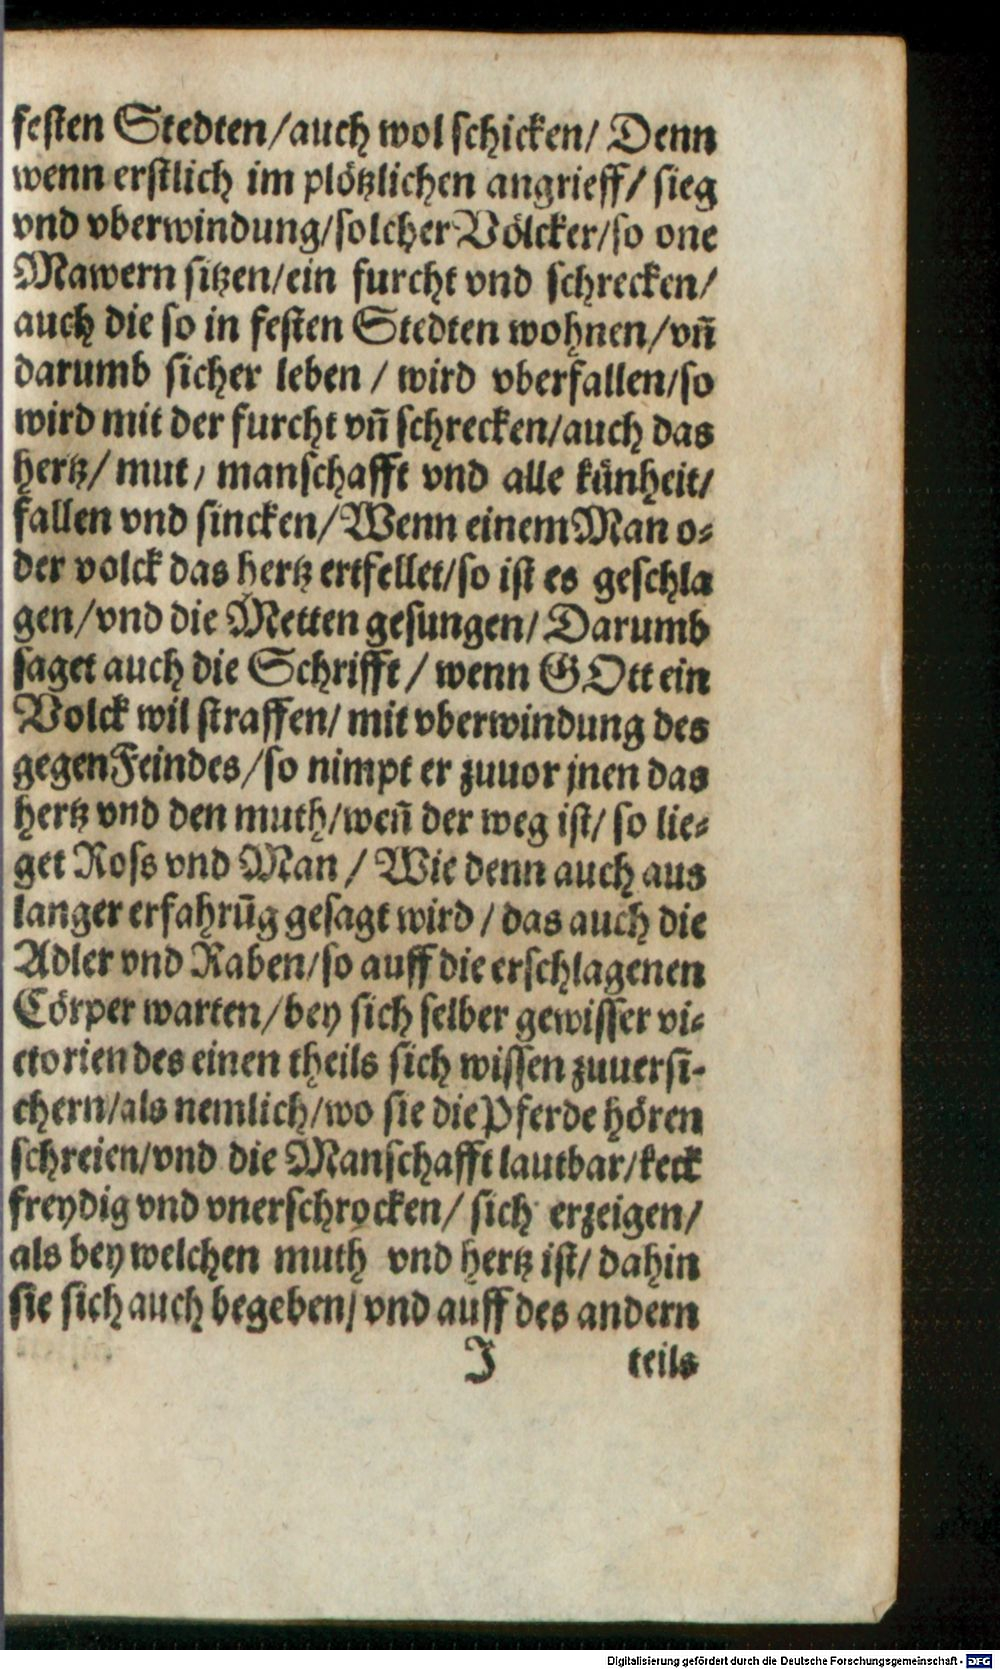 festen Stedten/auch wol schicken/ Denn
wenn erstlich im plötzlichen angrieff/ sieg
vnd vberwindung/solcher Völcker/so one
Mawern sitzen/ein furcht vnd schrecken/
auch die so in festen Stedten wohnen/vñ
darumb sicher leben / wird vberfallen/so
wird mit der furcht vñ schrecken/auch das
hertz/ mut/ manschafft vnd alle künheit/
fallen vnd sincken/Wenn einem Man o⸗
der volck das hertz ertfellet/so ist es geschla
gen/vnd die Metten gesungen/ Darumb
saget auch die Schrifft / wenn GOtt ein
Volck wil straffen/ mit vberwindung des
gegenFeindes/so nimpt er zuuor jnen das
hertz vnd den muth/weñ der weg ist/ so lie⸗
get Ross vnd Man / Wie denn auch aus
langer erfahrũg gesagt wird / das auch die
Adler vnd Raben/so auff die erschlagenen
Cörper warten/bey sich selber gewisser vi⸗
ctorien des einen theils sich wissen zuuersi-
chern/als nemlich/wo sie die Pferde hören
schreien/vnd die Manschafft lautbar/keck
freydig vnd vnerschrocken/ sich erzeigen/
als bey welchen muth vnd hertz ist/ dahin
sie sich auch begeben/ vnd auff des andern
J teils
Digitalisierung gefördert durch die Deutsche Forschungsgemeinschaft - DFG